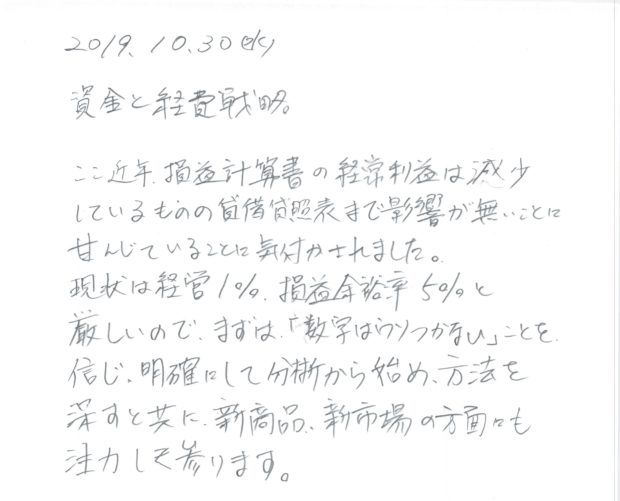 2019.10.30(水)
資金と経費戦略。
ここ近年、損益計算書の経常利益は減少
しているものの貸借貸照表まで影響が無いことに
甘んじていることに気付かされました。
現状は経営1%、損益余裕率5%と
厳しいので、まずは、「数字はウソつかない」ことを
信じ、明確にして分析から始め、方法を
深すと共に、新商品、新市場の方面にも
注力して参ります。